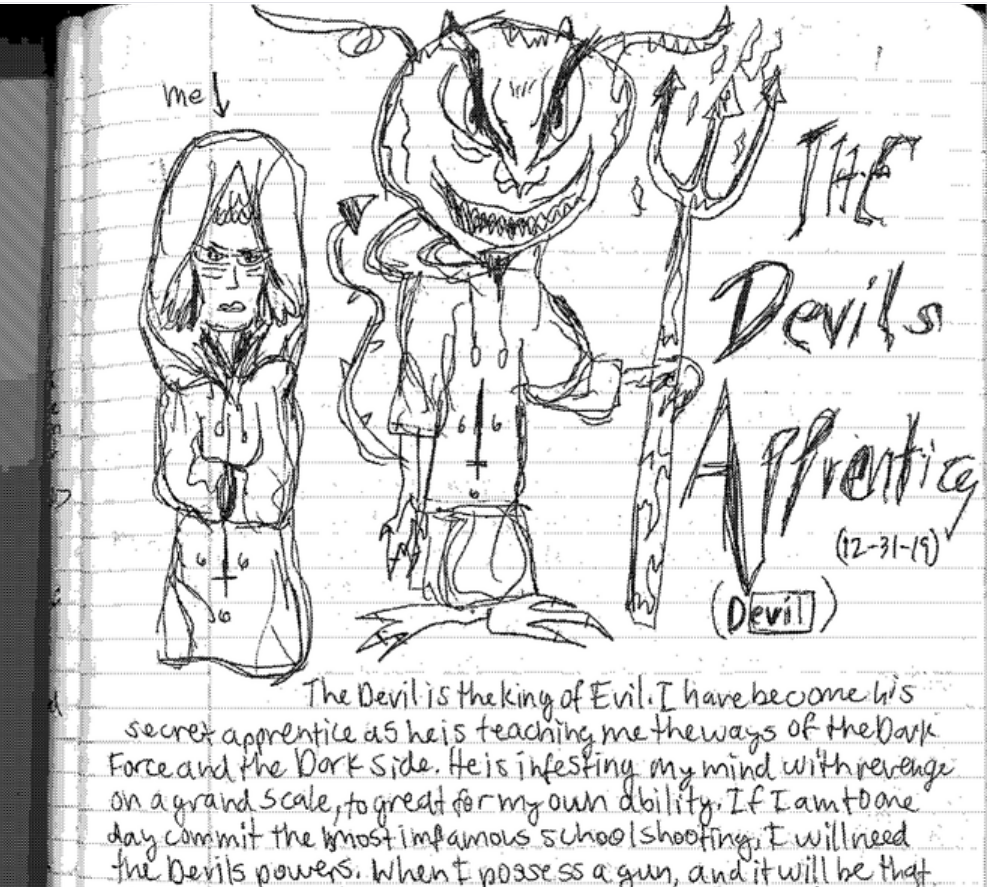 me
THE
Devils
Apprentice
(12-31-19)
(Devil)
6 6
6
6 6
6
The Devil is the king of Evil. I have become his
secret apprentice as he is teaching me the ways of the Dark
Force and the Dark Side. He is infesting my mind with revenge
on a grand scale, to great for my own ability. If I am to one
day commit the most infamous school shooting, I will need
the Devils powers. When I possess a gun, and it will be that